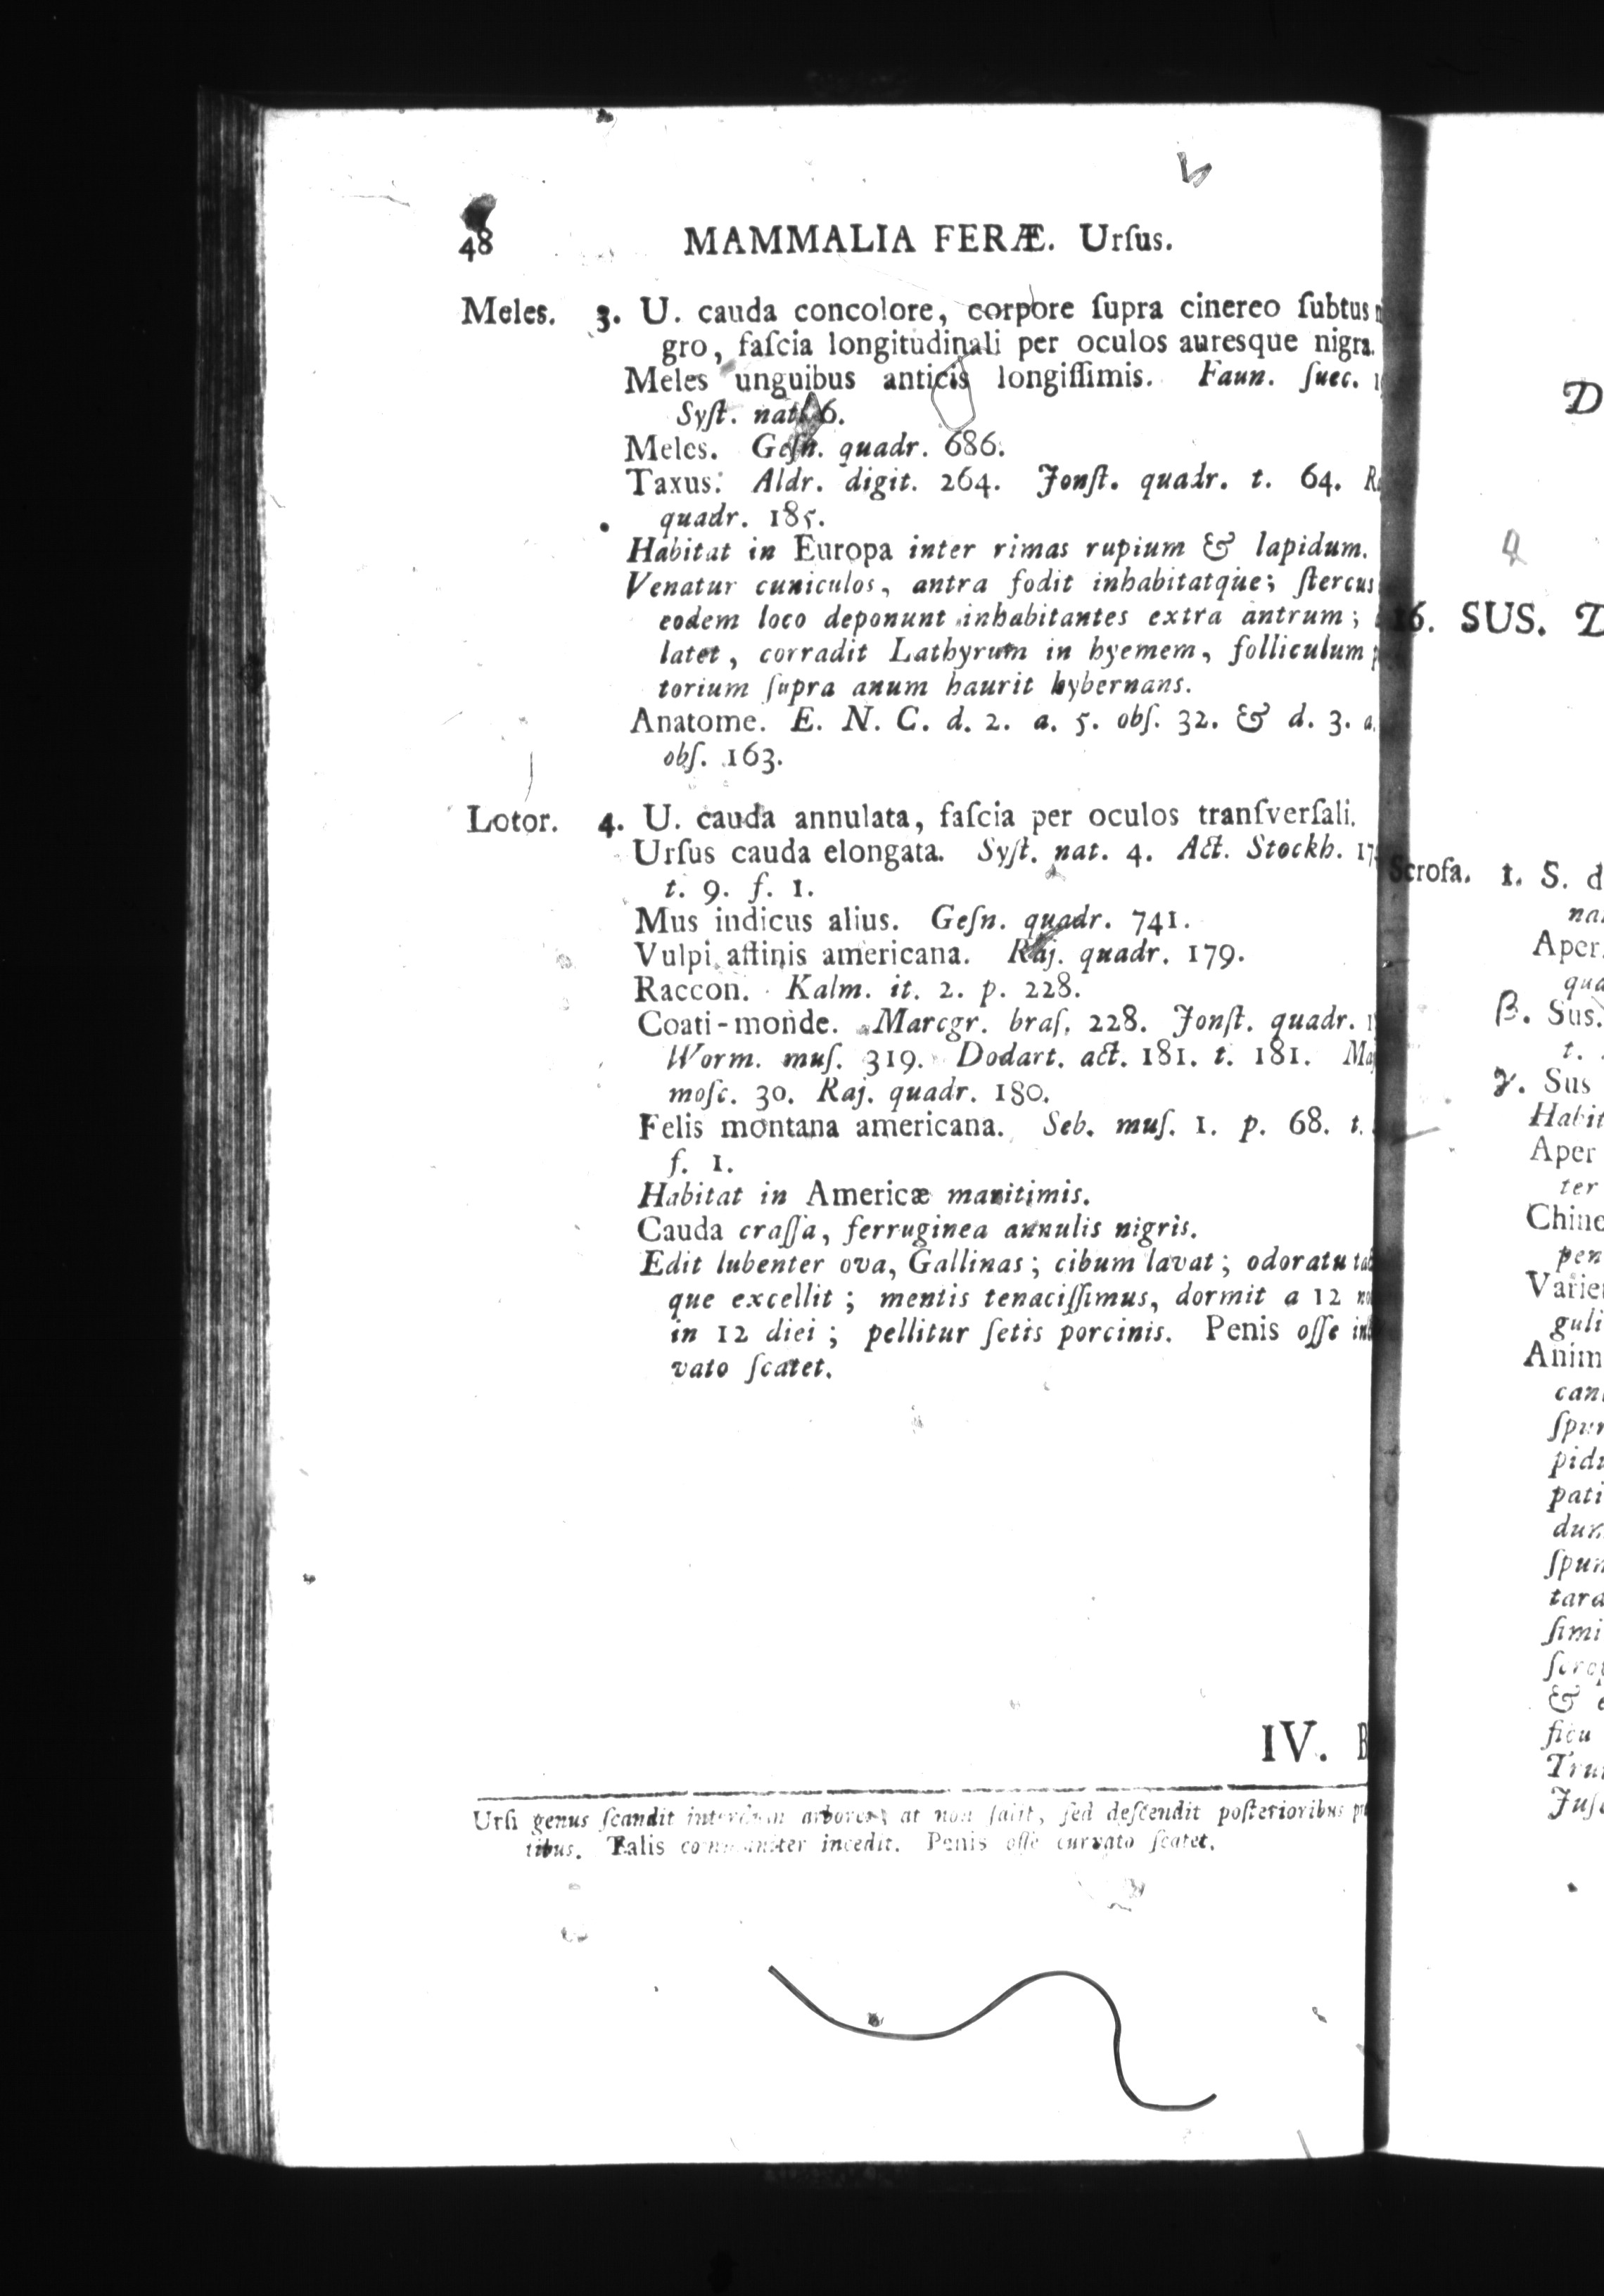 48 MAMMALIA FERÆ. Urſus.
Meles. 3. U. cauda concolore, corpore ſupra cinereo ſubtus
gro, faſcia longitudinali per oculos auresque nigra.
Meles unguibus anticis longiſſimis. Faun. ſuec.
Syſt. nat. 6.
Meles. Geſn. quadr. 686.
Taxus. Aldr. digit. 264. Jonſt. quadr. t. 64.
quadr. 185.
Habitat in Europa inter rimas rupium & lapidum.
Venatur cuniculos, antra fodit inhabitatque; ſtercus
eodem loco deponunt inhabitantes extra antrum;
latet, corradit Lathyrum in hyemem, folliculum
torium ſupra anum haurit hybernans.
Anatome. E. N. C. d. 2. a. 5. obſ. 32. & d. 3. a.
obſ. 163.
Lotor. 4. U. cauda annulata, faſcia per oculos tranſverſali.
Urſus cauda elongata. Syſt. nat. 4. Act. Stockh.
t. 9. f. 1.
Mus indicus alius. Geſn. quadr. 741.
Vulpi affinis americana. Raj. quadr. 179.
Raccon. Kalm. it. 2. p. 228.
Coati-monde. Marcgr. braſ. 228. Jonſt. quadr.
Worm. muſ. 319. Dodart. act. 181. t. 181.
moſc. 30. Raj. quadr. 180.
Felis montana americana. Seb. muſ. 1. p. 68. t.
f. 1.
Habitat in Americæ maritimis.
Cauda craſſa, ferruginea annulis nigris.
Edit lubenter ova, Gallinas; cibum lavat; odoratu
que excellit; mentis tenaciſſimus, dormit a 12
in 12 diei; pellitur ſetis porcinis. Penis oſſe
vato ſcatet.
IV.
Urſi genus ſcandit interdum arbores; at non ſalit, ſed deſcendit poſterioribus
tibus. Talis communiter incedit. Penis oſſe curvato ſcatet.
D
16. SUS. D
Scrofa. 1. S. d
Aper.
β. Sus.
t.
γ. Sus
Aper
ter
&